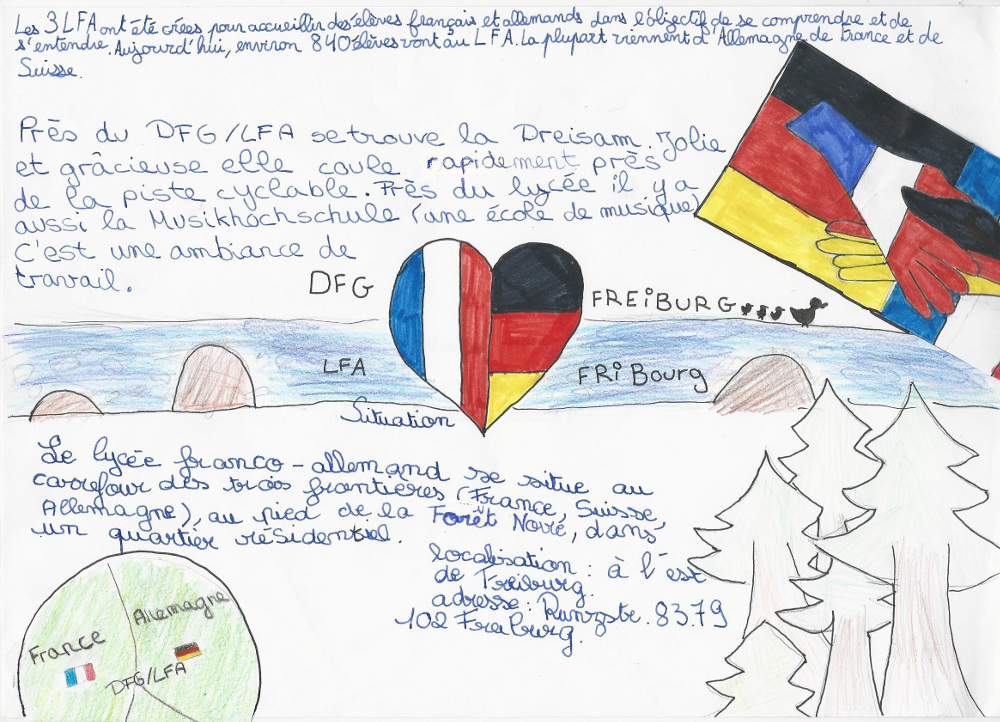 Les 3 LFA ont été crées pour accueillir des élèves français et allemands dans l'objectif de se comprendre et de
s'entendre. Aujourd'hui, environ 840 élèves vont au LFA. La plupart viennent d'Allemagne de France et de
Suisse.
Près du DFG/LFA se trouve la Dreisam. Jolie
et grâcieuse elle coule rapidement près
de la piste cyclable. Près du lycée il y a
aussi la Musikhochschule (une école de musique)
C'est une ambiance de
travail.
DFG
FREiBURG
LFA
FRiBourg
Situation
Le lycée franco-allemand se situe au
carrefour des trois frontières (France, Suisse,
Allemagne), au pied de la Forêt Noire, dans
un quartier résidentiel.
localisation : à l'est
de Freiburg.
adresse : Runzstr. 83.79
102 Freiburg.
France
Allemagne
DFG/LFA